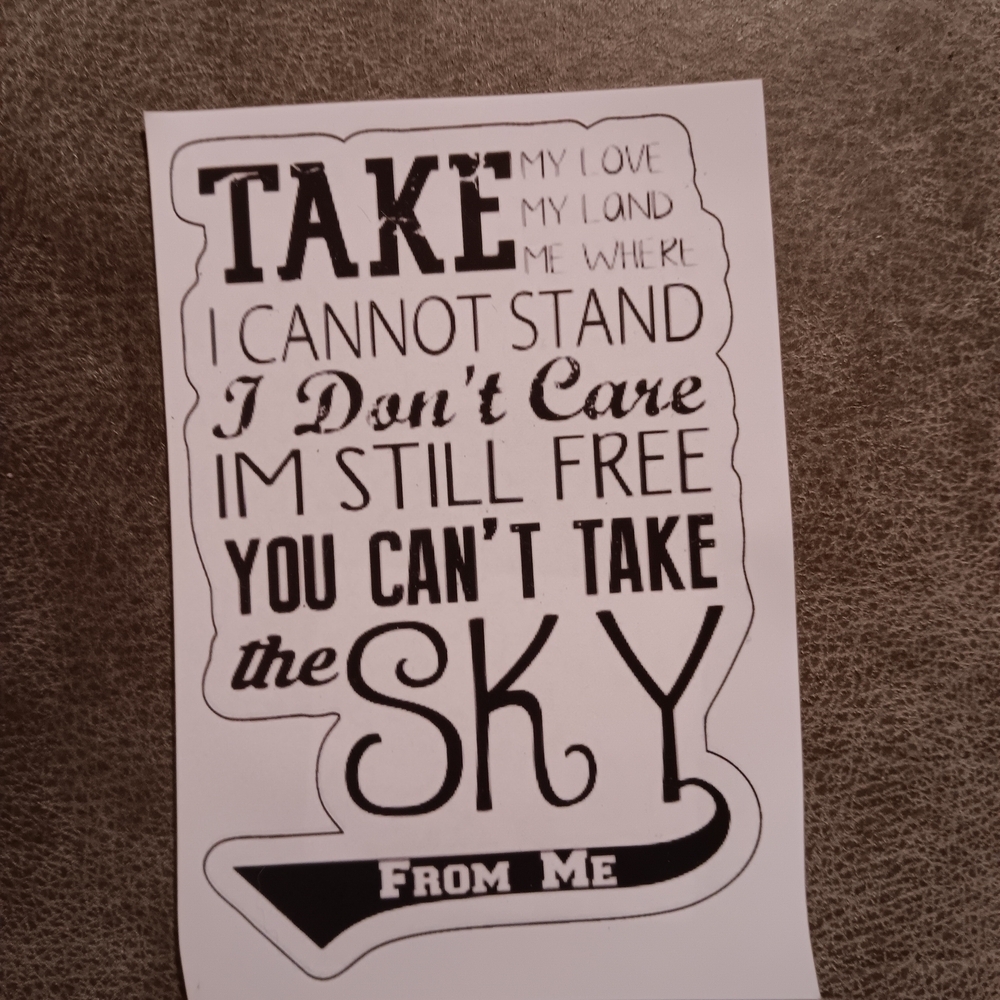 TAKE MY LOVE
MY LAND
ME WHERE
I CANNOT STAND
I Don't Care
IM STILL FREE
YOU CAN'T TAKE
the SKY
FROM ME